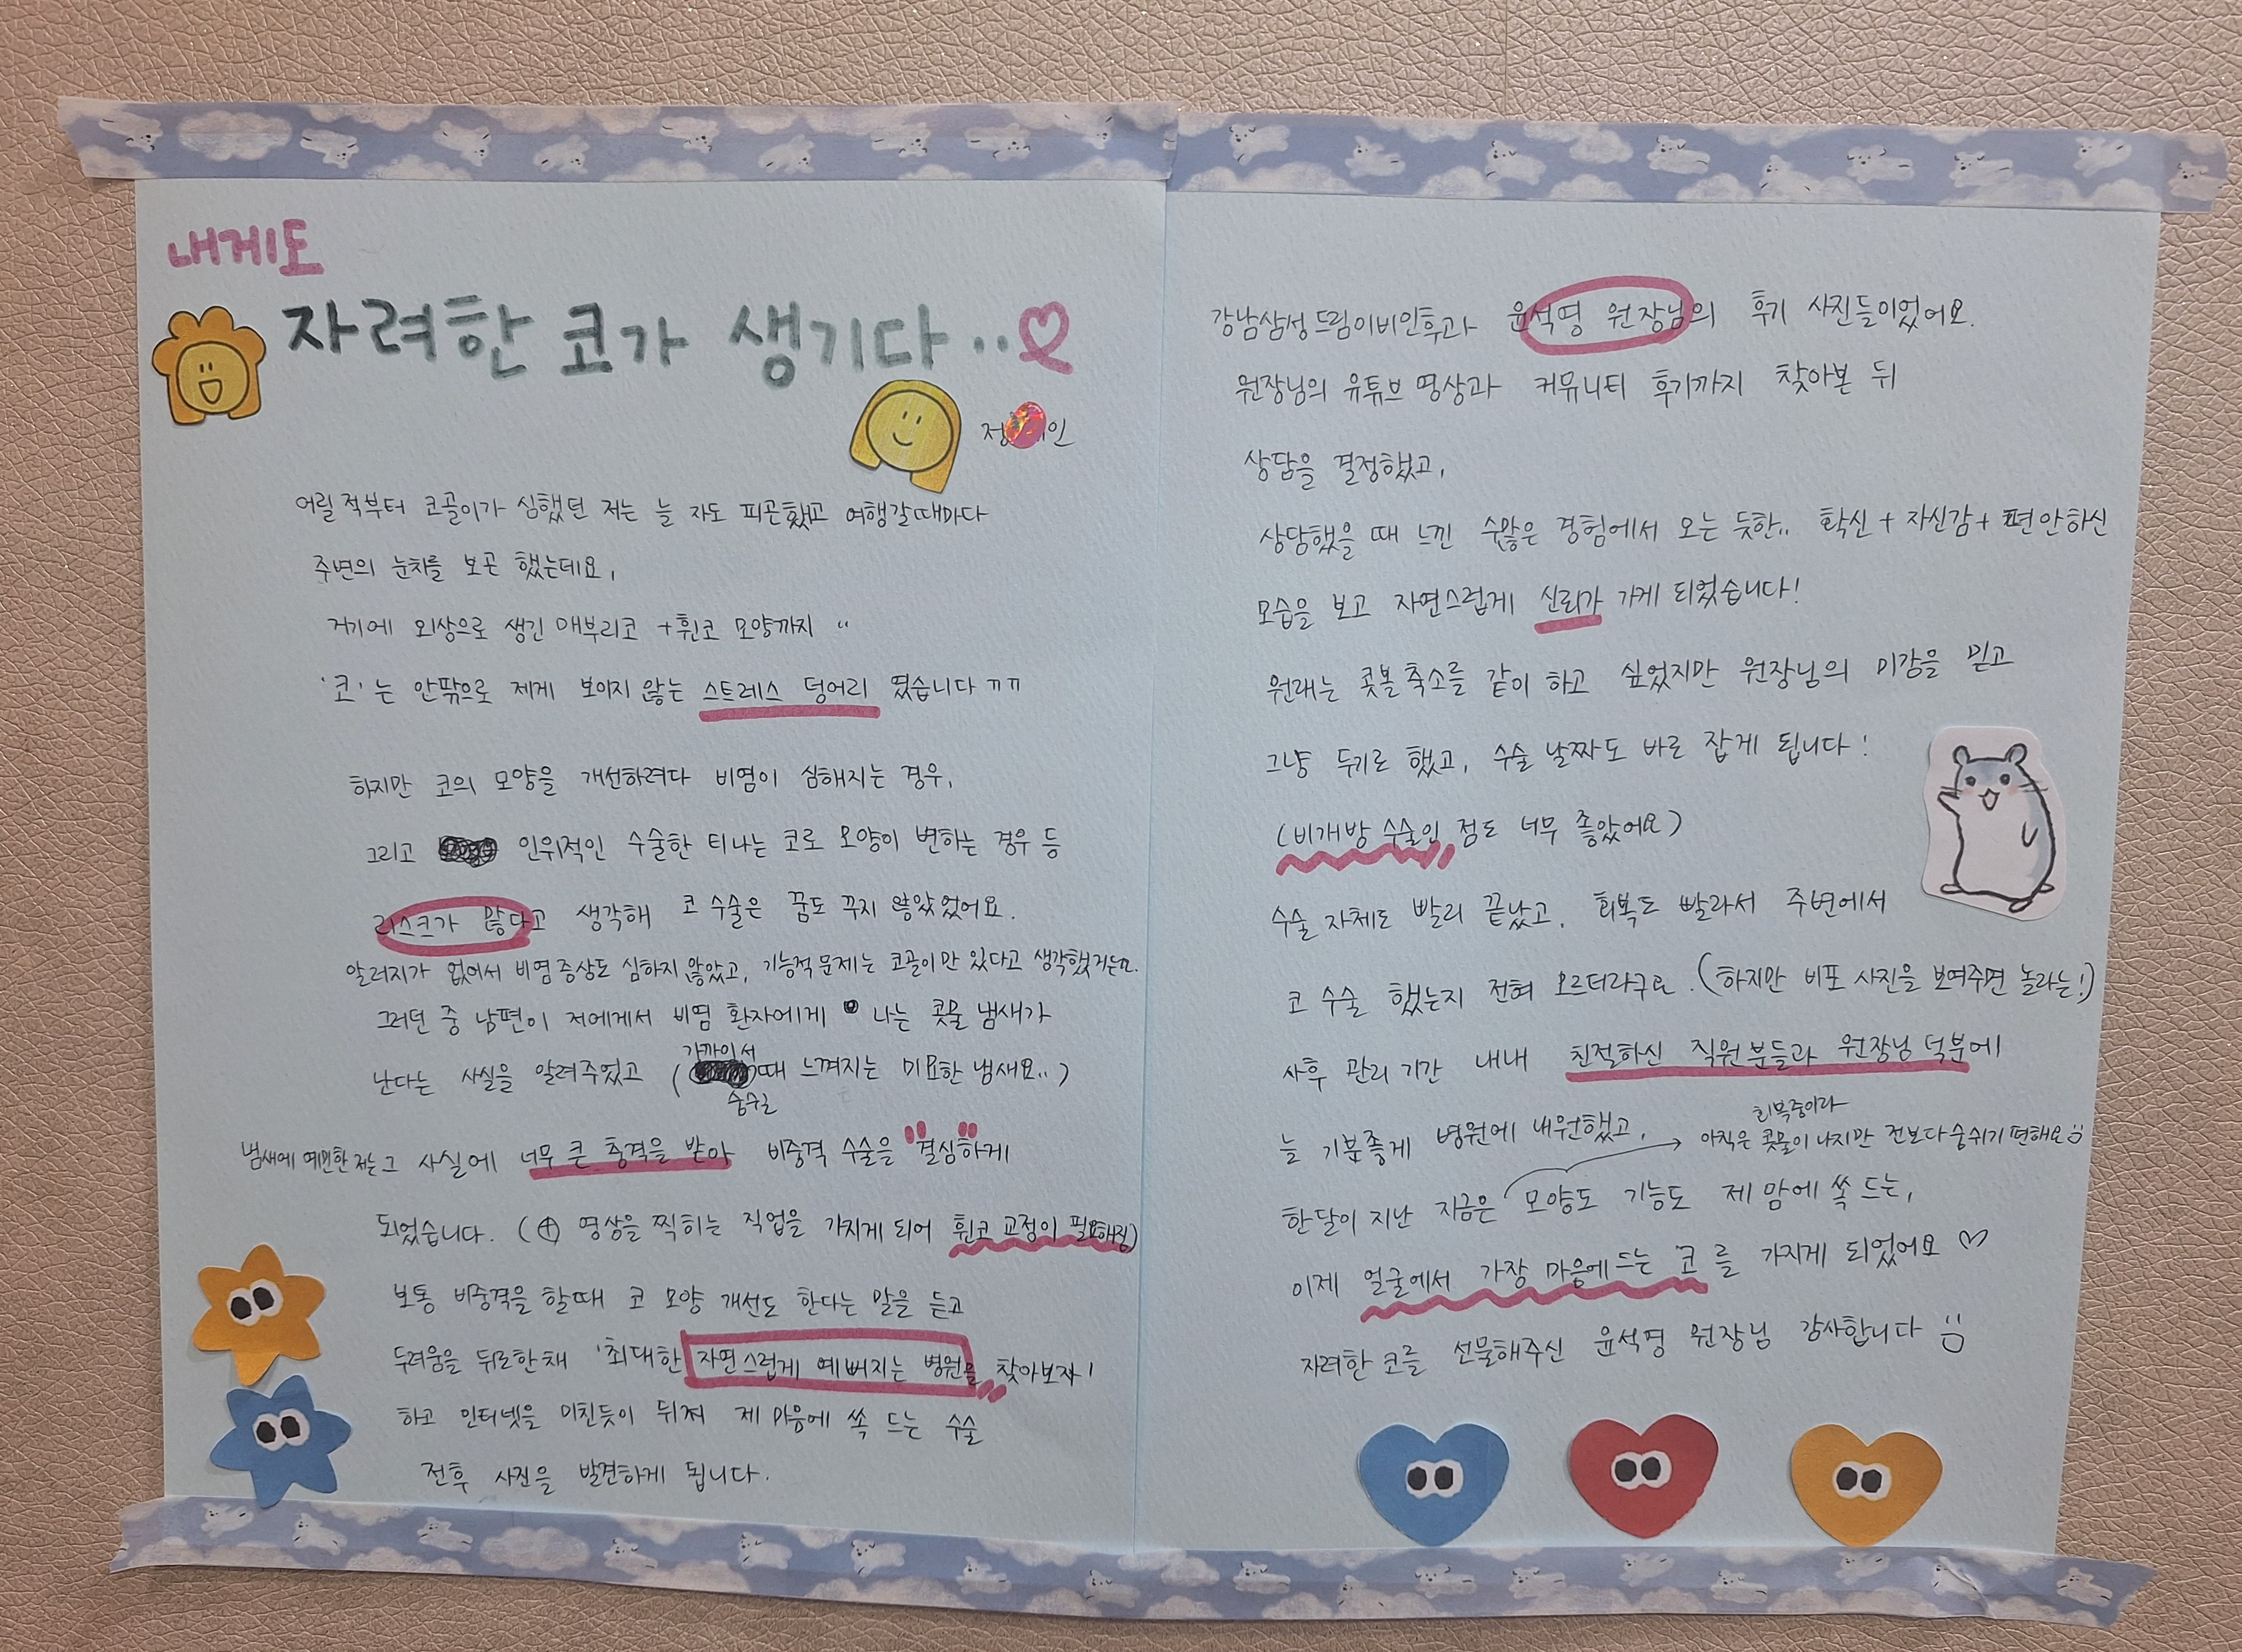 내게도
자려한 코가 생기다..♡
정 인
어릴적부터 코골이가 심했던 저는 늘 자도 피곤했고 여행갈때마다
주변의 눈치를 보곤 했는데요,
거기에 외상으로 생긴 매부리코 +휜코 모양까지 ..
'코'는 안팎으로 제게 보이지 않는 스트레스 덩어리 였습니다 ㅠㅠ
하지만 코의 모양을 개선하려다 비염이 심해지는 경우,
그리고 인위적인 수술한 티나는 코로 모양이 변하는 경우 등
리스크가 많다고 생각해 코 수술은 꿈도 꾸지 않았었어요.
알러지가 없어서 비염증상도 심하지 않았고, 기능적 문제는 코골이만 있다고 생각했거든요.
그러던 중 남편이 저에게서 비염 환자에게 나는 콧물 냄새가
난다는 사실을 알려주었고 (가까이서 숨쉴때 느껴지는 미묘한 냄새요..)
냄새에 예민한 저는 그 사실에 너무 큰 충격을 받아 비중격 수술을 "결심"하게
되었습니다. (⊕ 영상을 찍히는 직업을 가지게 되어 휜코 교정이 필요해짐)
보통 비중격을 할때 코 모양 개선도 한다는 말을 듣고
두려움을 뒤로한채 '최대한 자연스럽게 예뻐지는 병원을 찾아보자!
하고 인터넷을 미친듯이 뒤져 제 마음에 쏙 드는 수술
전후 사진을 발견하게 됩니다.
강남삼성드림이비인후과 윤석명 원장님의 후기 사진들이었어요.
원장님의 유튜브 영상과 커뮤니티 후기까지 찾아본 뒤
상담을 결정했고,
상담했을 때 느낀 수많은 경험에서 오는 듯한.. 확신 + 자신감 + 편안하신
모습을 보고 자연스럽게 신뢰가 가게 되었습니다!
원래는 콧볼축소를 같이 하고 싶었지만 원장님의 미감을 믿고
그냥 두기로 했고, 수술 날짜도 바로 잡게 됩니다!
(비개방 수술인 점도 너무 좋았어요)
수술 자체도 빨리 끝났고, 회복도 빨라서 주변에서
코 수술 했는지 전혀 모르더라구요. (하지만 비포 사진을 보여주면 놀라는!)
사후 관리 기간 내내 친절하신 직원분들과 원장님 덕분에
늘 기분좋게 병원에 내원했고,
→ 회복중이라 아직은 콧물이 나지만 전보다 숨쉬기 편해요
한달이 지난 지금은 모양도 기능도 제 맘에 쏙 드는,
이제 얼굴에서 가장 마음에드는 코를 가지게 되었어요 ♡
자려한 코를 선물해주신 윤석명 원장님 감사합니다 :)